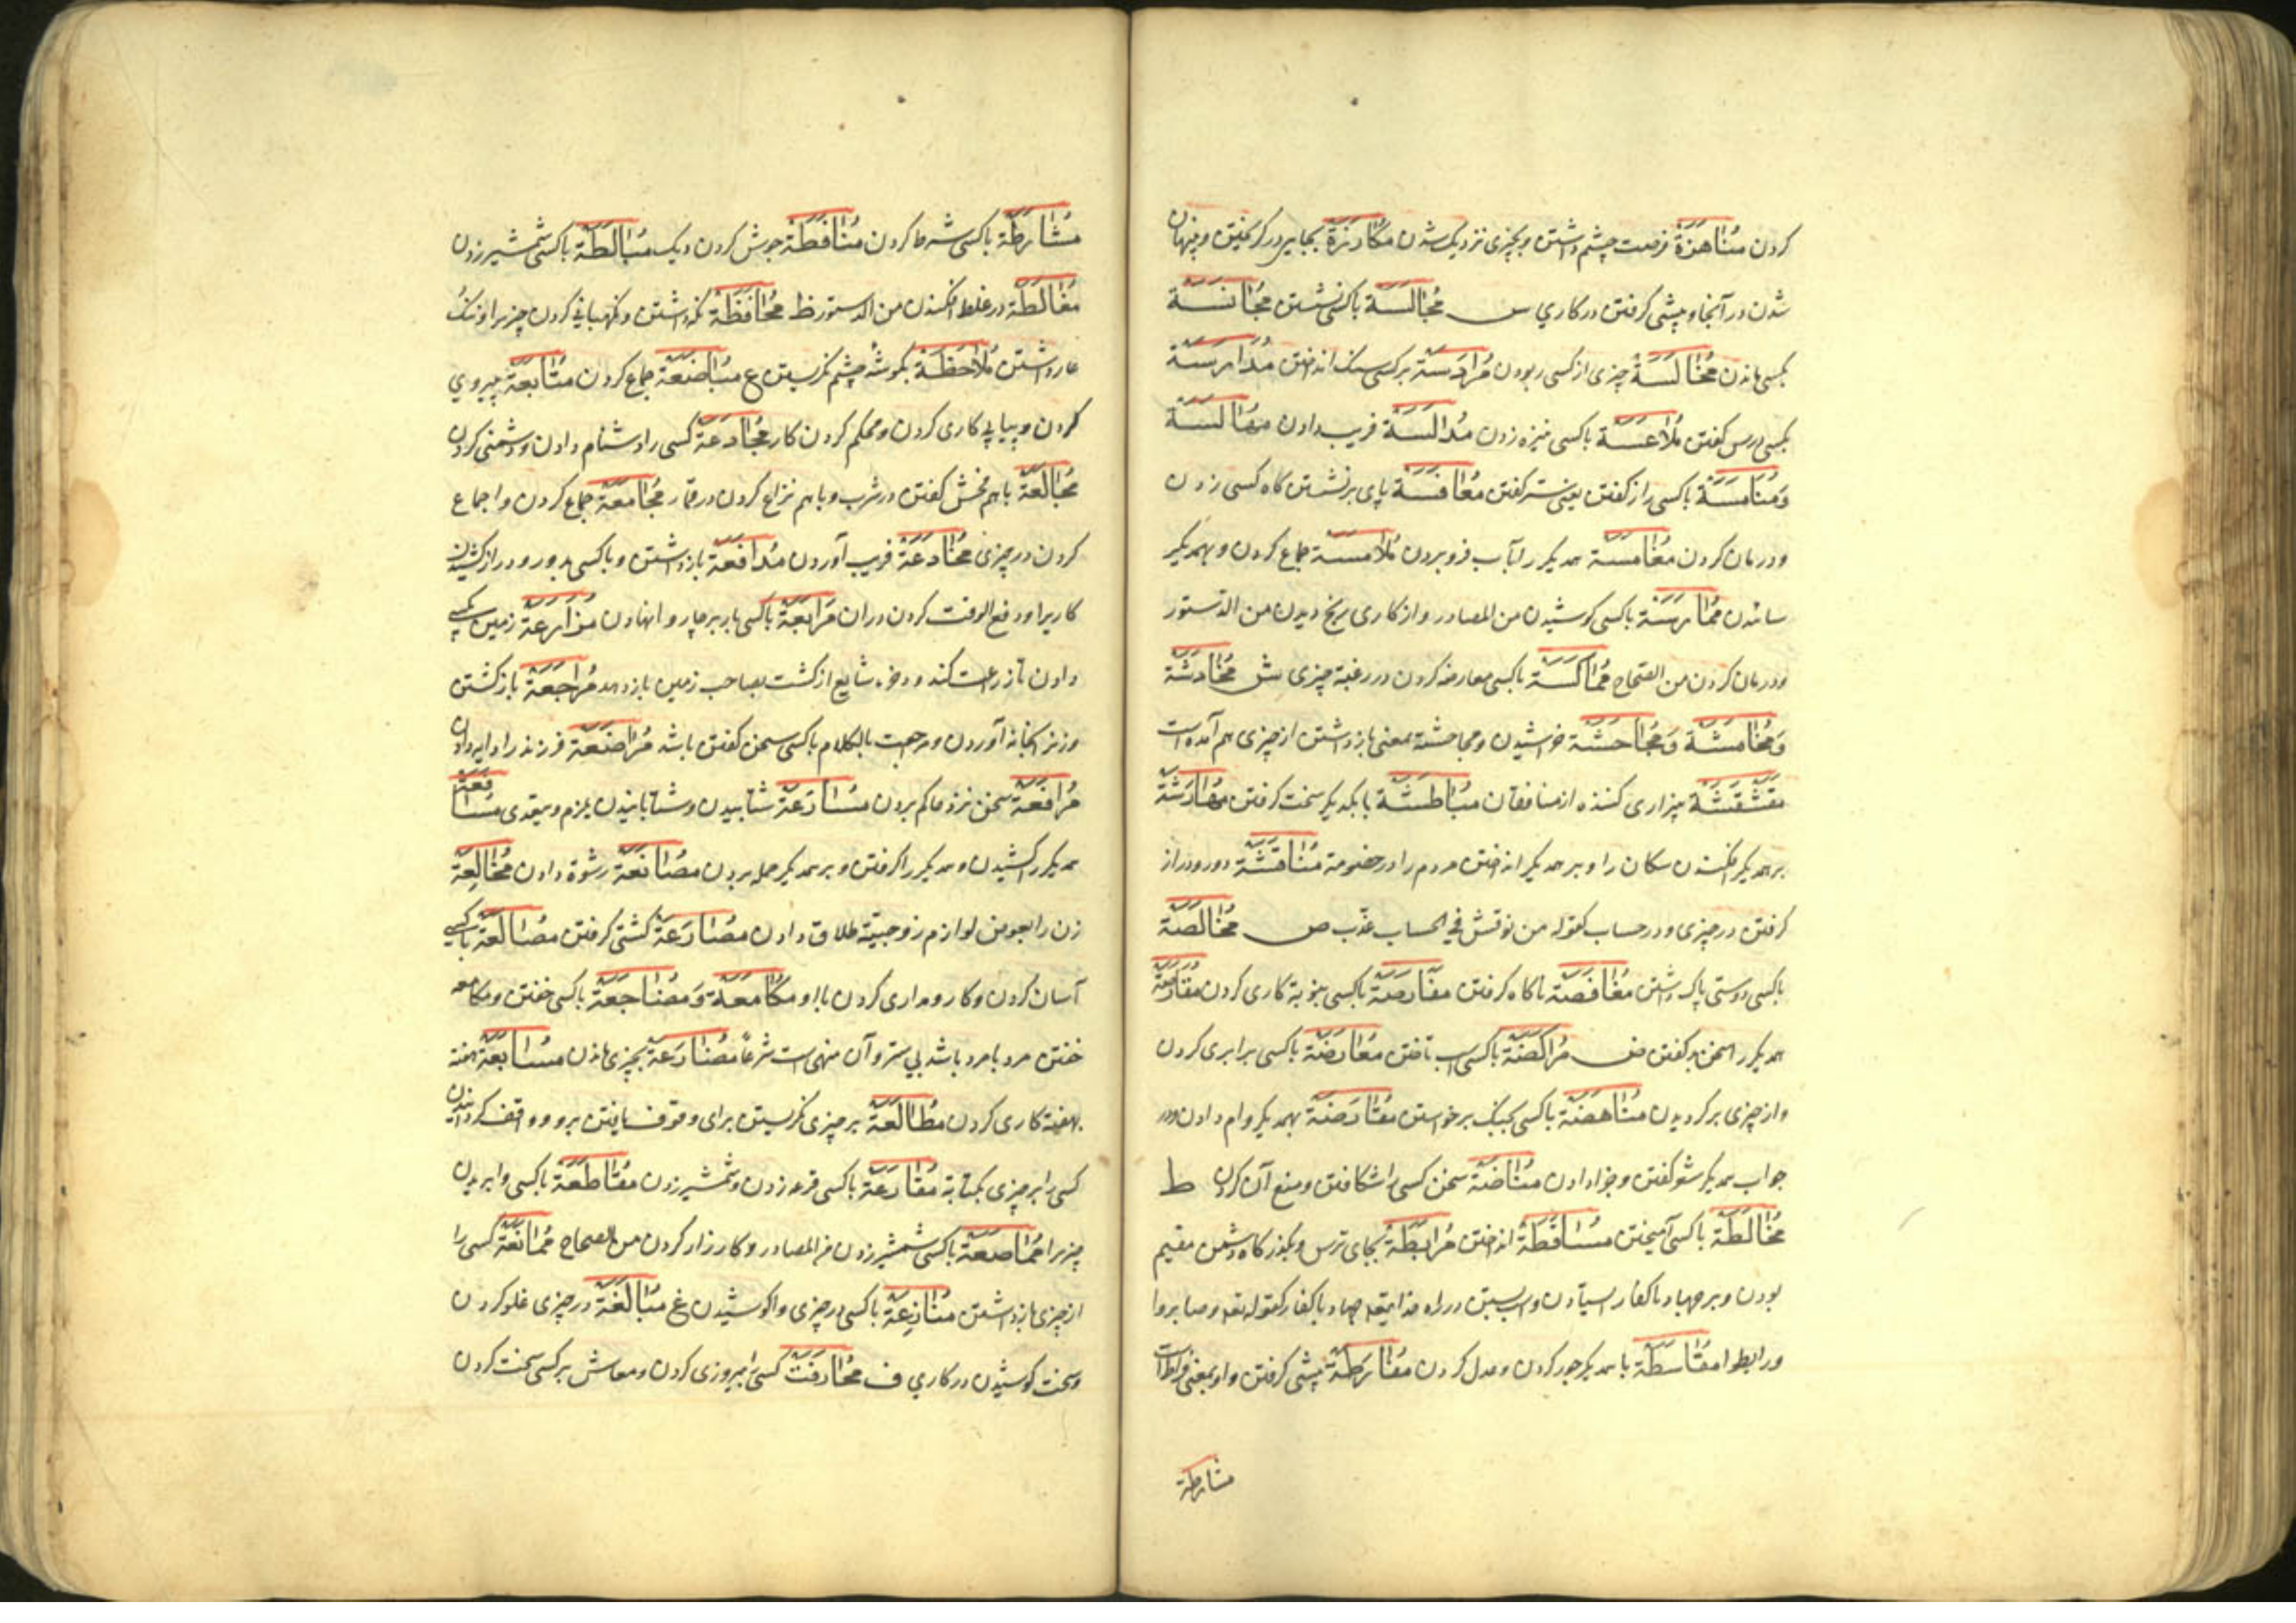 کردن مُنَاهَزَة فرصت چشم داشتن و بچیزی نزدیک شدن مُکَارَزَة بجایی در گریختن و پنهان
شدن در آنجا و پیشی گرفتن در کاري س مُجَالَسَة باکسی نشستن مُجَانَسَة
بکسی ماندن مُخَالَسَة چیزی از کسی ربودن مُرَادَسَة بر کسی سنک انداختن مُدَارَسَة
بکسی درس گفتن مُلَاعَسَة باکسی نیزه زدن مُدَالَسَة فریب دادن
وَمُنَامَسَة باکسی راز گفتن یعنی ستر گفتن مُعَافَسَة پای بر نشستن گاه کسی زدن
و درمان کردن مُغَامَسَة همدیگر را بآب فرو بردن مُلَامَسَة جماع کردن و بهمدیگر
سائیدن مُمَارَسَة باکسی کوشیدن من المصادر و از کاری رنج دیدن من الدستور
و درمان کردن من الصحاح مُمَاکَسَة باکسی معارضه کردن در رغبة چیزی ش مُخَادَشَة
وَمُخَامَشَة وَمُجَاحَشَة خراشیدن و مجاحشة بمعنی بازداشتن از چیزی هم آمده است
مُقَشْقَشَة بیزاری کننده از منافقان مُبَاطَشَة با یکدیگر سخت گرفتن مُهَارَشَة
بر همدیگر افکندن سکان را و بر همدیگر انداختن مردم را در خصومة مُنَاقَشَة دور و دراز
گرفتن در چیزی و در حساب کقوله من نوقش في الحساب عذّب ص مُخَالَصَة
باکسی دوستی پاک داشتن مُغَافَصَة ناگاه گرفتن مُفَارَصَة باکسی بنوبة کاری کردن مُقَارَصَة
همدیگر را سخن بد گفتن ض مُرَاکَضَة باکسی اسب تاختن مُعَارَضَة باکسی برابری کردن
و از چیزی بر گردیدن مُنَاهَضَة باکسی بجنک برخواستن مُقَارَضَة بهمدیگر وام دادن و در
جواب همدیگر شعر گفتن و جزا دادن مُنَاقَضَة سخن کسی را شکافتن و منع آن کردن ط
مُخَالَطَة باکسی آمیختن مُسَاقَطَة انداختن مُرَابَطَة بجای ترس و بگذرگاه دشمن مقیم
بودن و بر جهاد باکفار ایستادن و اسب بستن در راه خدا بقصد جهاد باکفار کقوله تعه و صابروا
و رابطوا مُقَاسَطَة با همدیگر جور کردن و عدل کردن مُفَارَطَة پیشی گرفتن و او بمعنی فراط است
مشارطة
مُشَارَطَة باکسی شرط کردن مُنَافَطَة جوش کردن دیک مُبَالَطَة باکسی شمشیر زدن
مُغَالَطَة در غلط افکندن من الدستور ظ مُحَافَظَة نگه داشتن و نگهبانی کردن چیزیرا و ننک
عار داشتن مُلَاحَظَة بگوشهٔ چشم نگریستن ع مُبَاضَعَة جماع کردن مُتَابَعَة پیروي
کردن و پیاپی کاری کردن و محکم کردن کار مُجَادَعَة کسی را دشنام دادن و دشمنی کردن
مُجَالَعَة باهم فحش گفتن در شرب و باهم نزاع کردن در قمار مُجَامَعَة جماع کردن و اجماع
کردن در چیزی مُخَادَعَة فریب آوردن مُدَافَعَة بازداشتن و باکسی بدور و دراز کشیدن
کاریرا و دفع الوقت کردن در ان مُرَابَعَة باکسی بار بر چاروا نهادن مُزَارَعَة زمین بکسی
دادن تا زراعت کند و جزء شایع از کشت بصاحب زمین باز دهد مُرَاجَعَة بازکشتن
و زنرا بخانه آوردن و مراجعت بالکلام باکسی سخن گفتن باشد مُرَاضَعَة فرزند را دایه دادن
مُرَافَعَة سخن نزد حاکم بردن مُسَارَعَة شتابیدن و شتابانیدن یلزم و یتعدی مُسَافَعَة
همدیگر را کشیدن و همدیگر را گرفتن و بر همدیگر حمله بردن مُصَانَعَة رشوة دادن مُخَالَعَة
زن را بعوض لوازم زوجیّة طلاق دادن مُصَارَعَة کشتی گرفتن مُصَالَعَة باکسی
آسان کردن و کار و مداری کردن با او مُکَامَعَة وَمُضَاجَعَة باکسی خفتن و مکامعه
خفتن مرد بامرد باشد بی ستر و آن منهی است شرعاً مُضَارَعَة بچیزی ماندن مُسَابَعَة هفته
بهفته کاری کردن مُطَالَعَة بر چیزی نگریستن برای وقوف یافتن بر و و واقف گردانیدن
کسی را بر چیزی بکتابة مُقَارَعَة باکسی قرعه زدن و شمشیر زدن مُقَاطَعَة باکسی وابریدن
چیزیرا مُمَاصَعَة باکسی شمشیر زدن من المصادر و کارزار کردن من الصحاح مُمَانَعَة کسی را
از چیزی بازداشتن مُنَازَعَة باکسی در چیزی واکوشیدن غ مُبَالَغَة در چیزی غلو کردن
و سخت کوشیدن در کاري ف مُحَارَفَت کسی را بیروزی کردن و معاش بر کسی سخت کردن